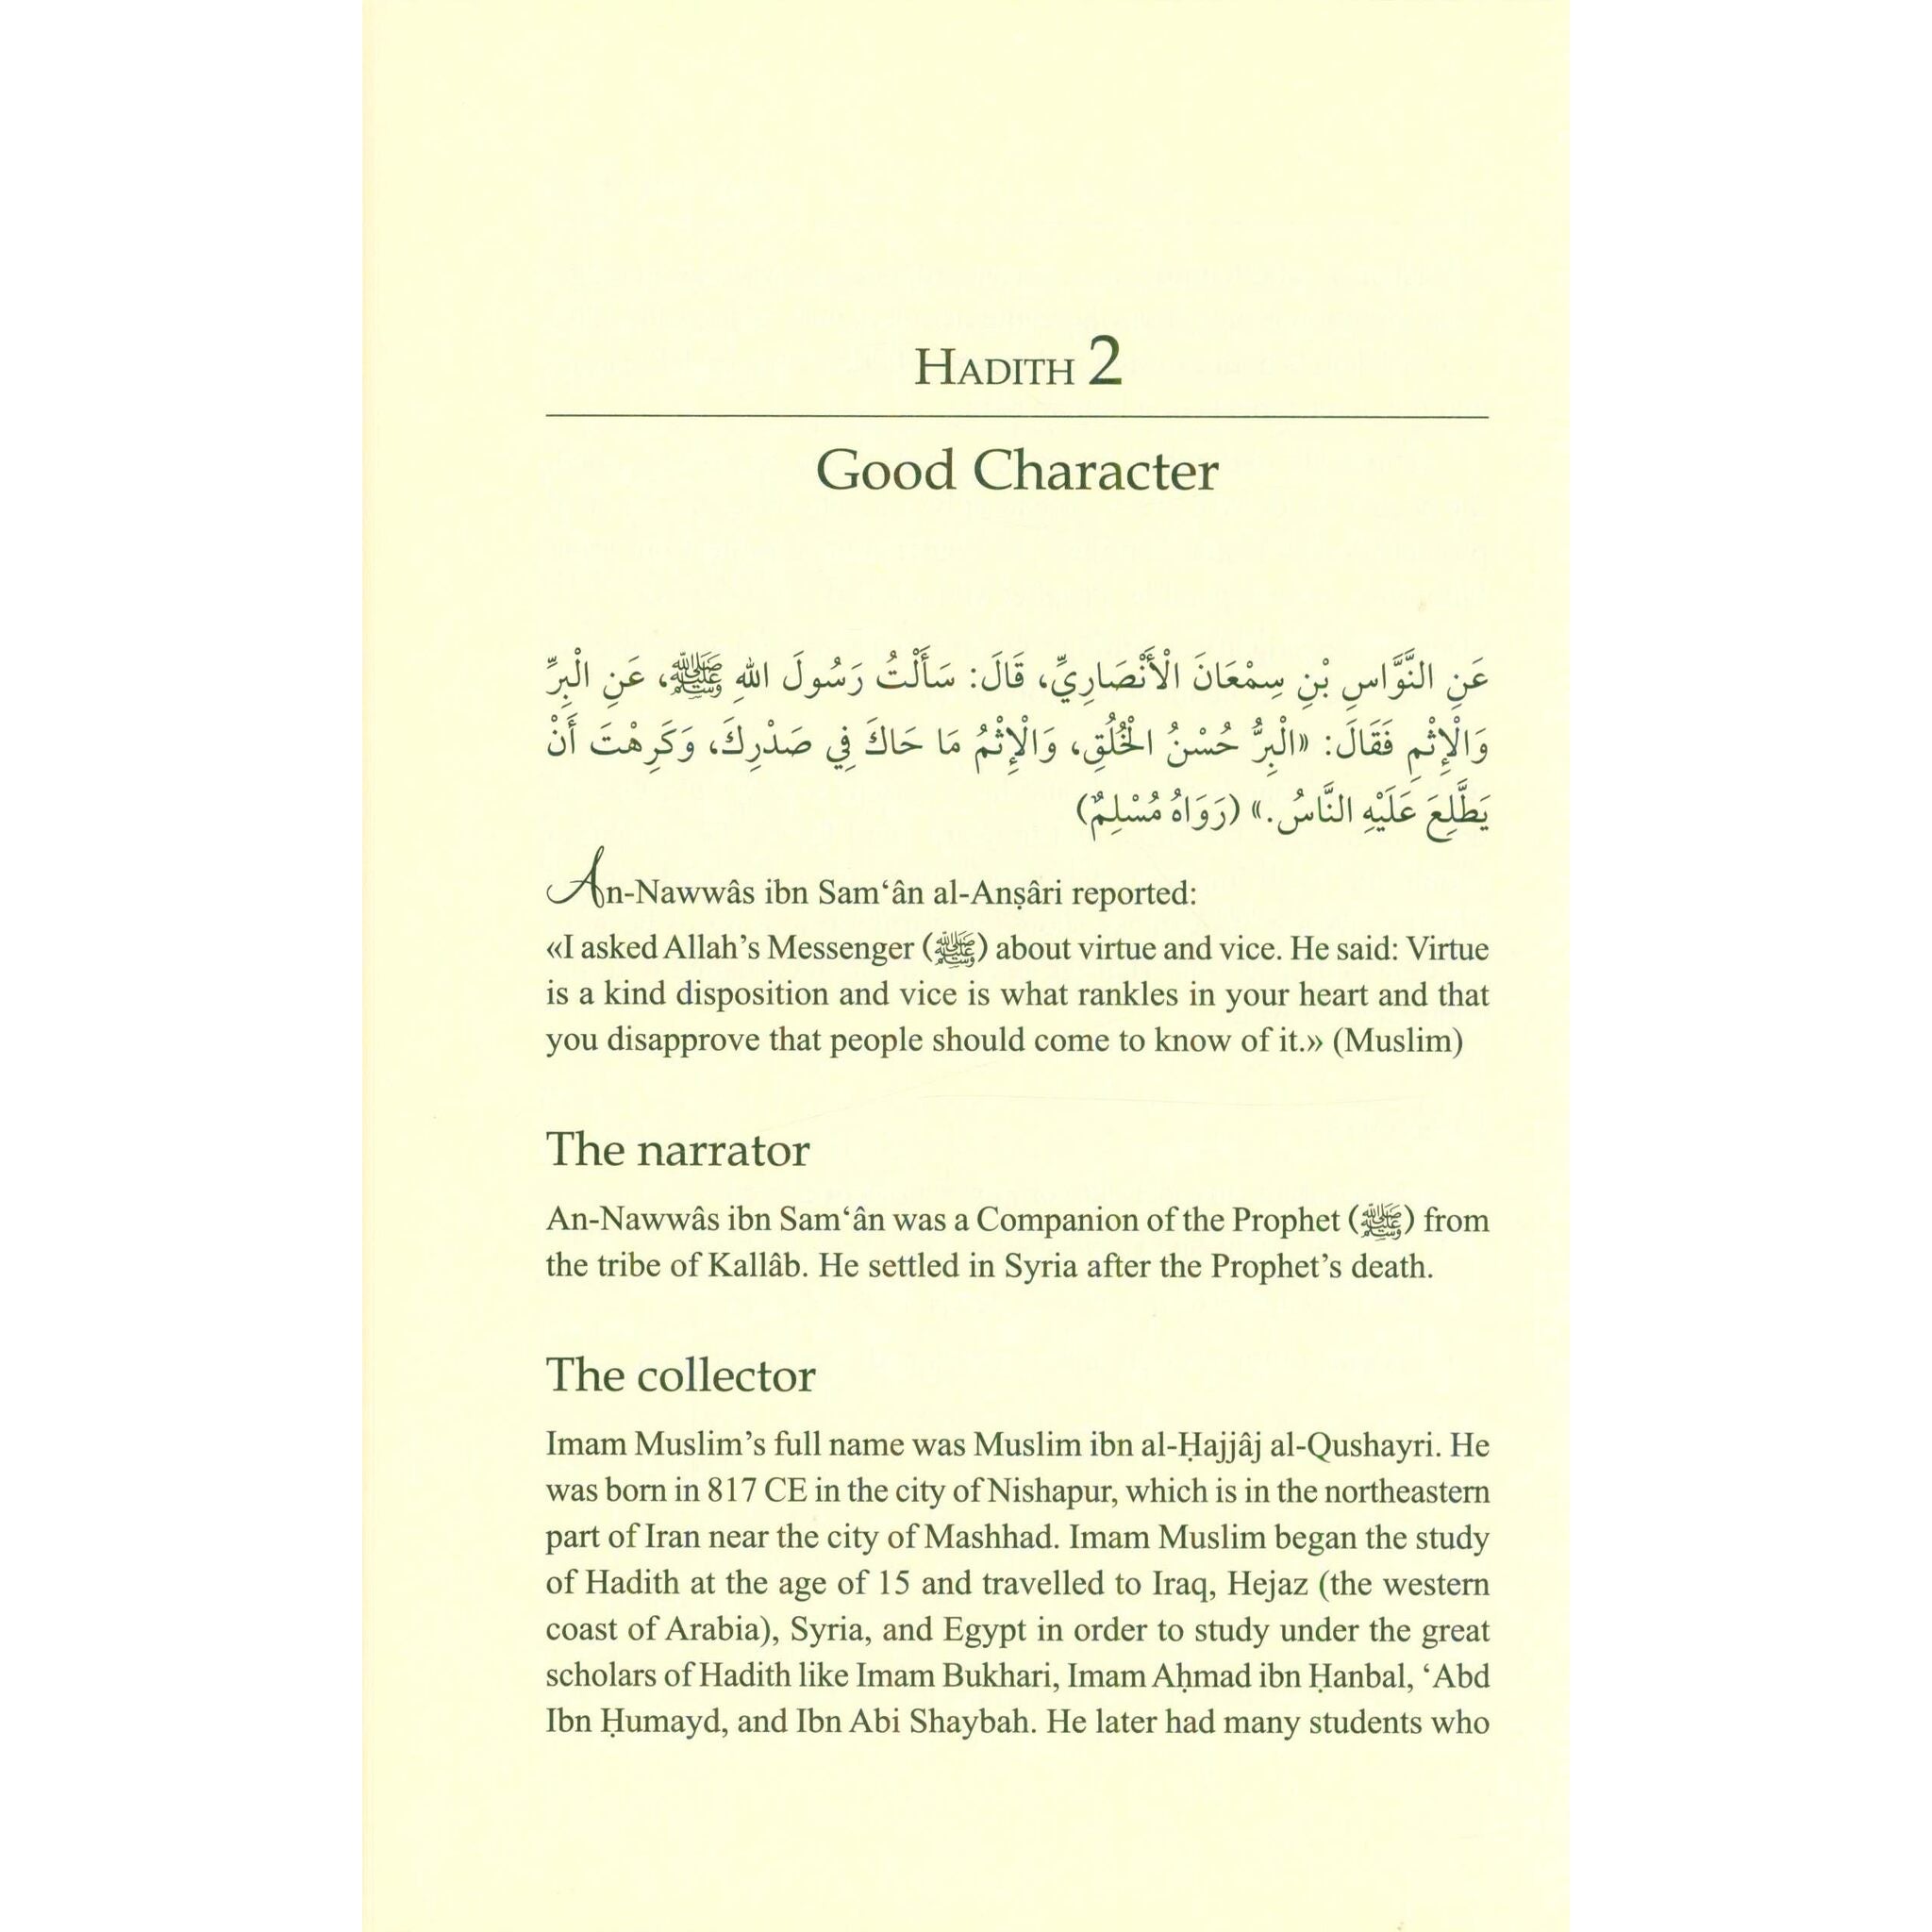 HADITH 2
Good Character
عَنِ النَّوَّاسِ بْنِ سِمْعَانَ الْأَنْصَارِيِّ، قَالَ: سَأَلْتُ رَسُولَ اللهِ ﷺ، عَنِ الْبِرِّ
وَالْإِثْمِ فَقَالَ: «الْبِرُّ حُسْنُ الْخُلُقِ، وَالْإِثْمُ مَا حَاكَ فِي صَدْرِكَ، وَكَرِهْتَ أَنْ
يَطَّلِعَ عَلَيْهِ النَّاسُ.» (رَوَاهُ مُسْلِمٌ)
An-Nawwâs ibn Sam‘ân al-Anṣâri reported:
«I asked Allah’s Messenger (ﷺ) about virtue and vice. He said: Virtue
is a kind disposition and vice is what rankles in your heart and that
you disapprove that people should come to know of it.» (Muslim)
The narrator
An-Nawwâs ibn Sam‘ân was a Companion of the Prophet (ﷺ) from
the tribe of Kallâb. He settled in Syria after the Prophet’s death.
The collector
Imam Muslim’s full name was Muslim ibn al-Ḥajjâj al-Qushayri. He
was born in 817 CE in the city of Nishapur, which is in the northeastern
part of Iran near the city of Mashhad. Imam Muslim began the study
of Hadith at the age of 15 and travelled to Iraq, Hejaz (the western
coast of Arabia), Syria, and Egypt in order to study under the great
scholars of Hadith like Imam Bukhari, Imam Aḥmad ibn Ḥanbal, ‘Abd
Ibn Ḥumayd, and Ibn Abi Shaybah. He later had many students who